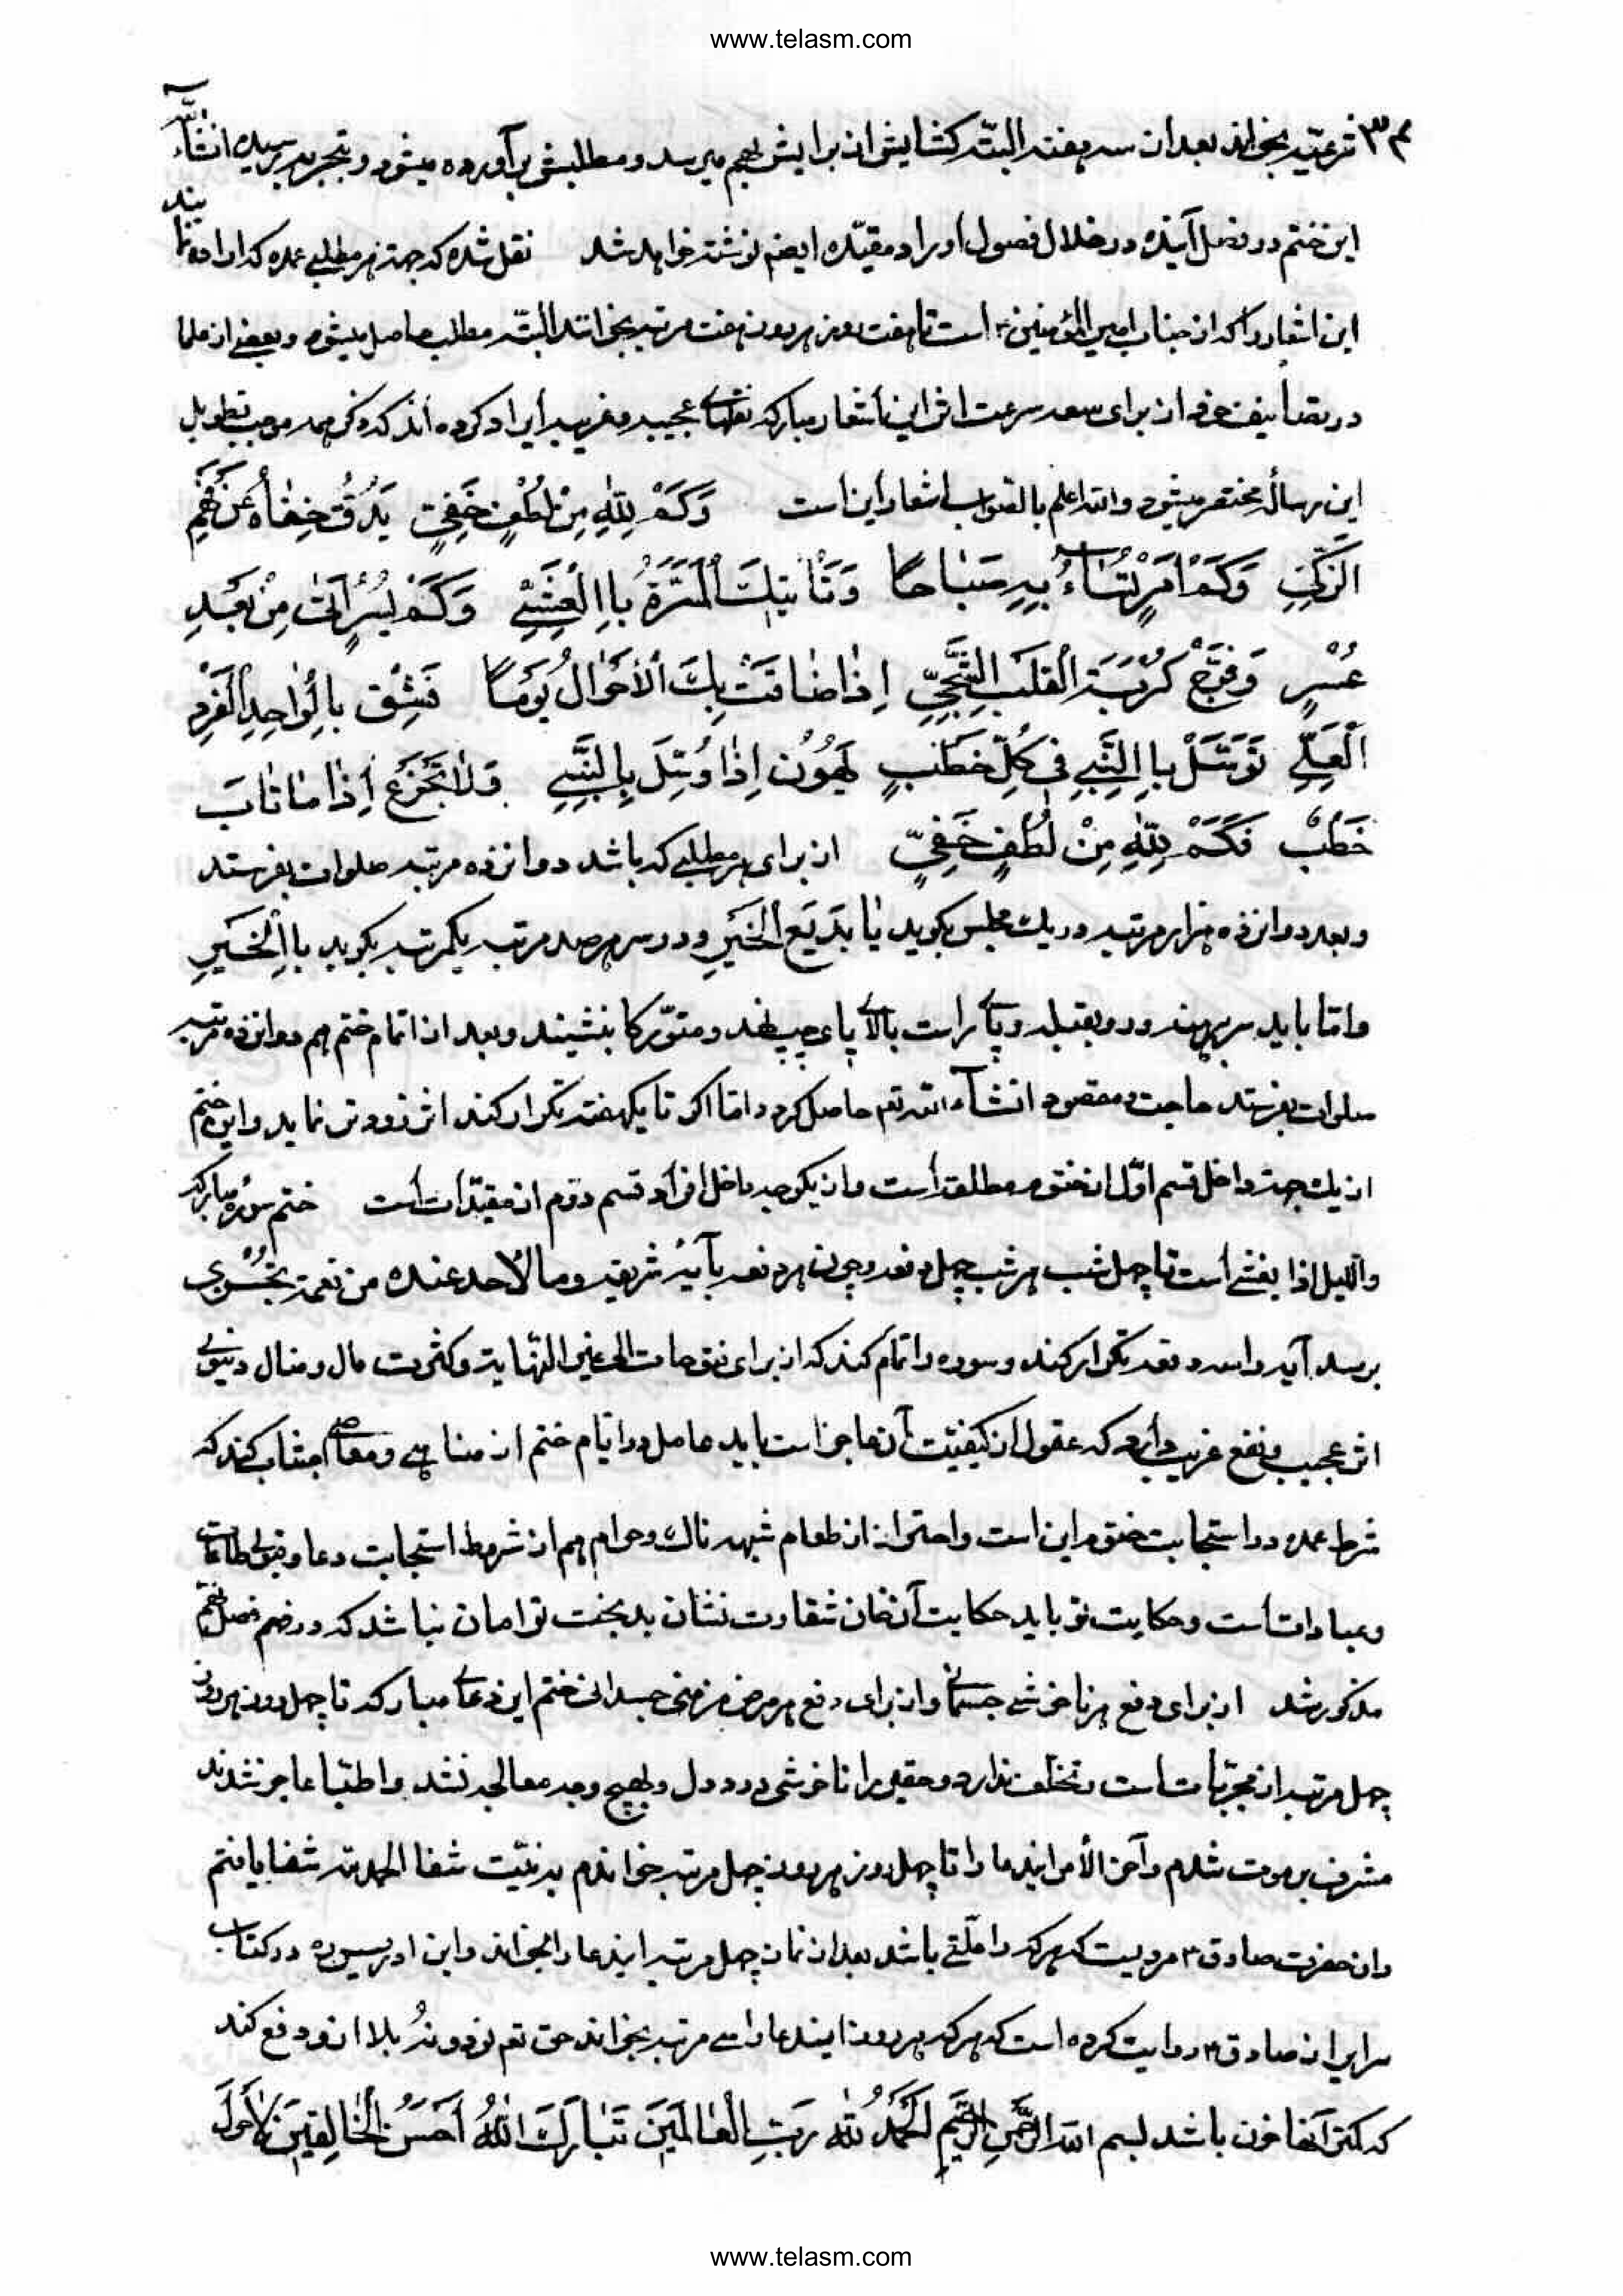 www.telasm.com
شرعیّه بخواند بعد از سه هفته البتّه کشایش از برایش بهم میرسد و مطلبش برآورده میشود و بتجربه رسیده انشاءالله
این ختم در فصل آینده در خلال فصول اوراد مقیّده ایضم نوشته خواهد شد نقل شده که جهة هر مطلبی عمده که اراده نمایند
این اشعار را که از جناب امیرالمؤمنین ع است تا هفت روز هر روز هفت مرتبه بخوانند البتّه مطلب حاصل میشود و بعضی از علما
در تصانیف خود از برای سرعت اثر این اشعار مبارکه نقلهای عجیبه و غریبه ایراد کرده اند که ذکر همه موجب تطویل
این رساله مختصر میشود والله اعلم بالصواب اشعار این است وَکَمْ لِلّٰهِ مِنْ لُطْفٍ خَفِیٍّ یَدُقُّ خِفٰاهُ عَنْ فَهْمِ
الزَّکِیِّ وَکَمْ اَمْرٍ تُسٰاءُ بِهِ صَبٰاحًا وَتَأْتِیکَ الْمَسَرَّةُ بِالْعَشِیِّ وَکَمْ یُسْرٍ اَتٰی مِنْ بَعْدِ
عُسْرٍ وَفَرَّجَ کُرْبَةَ الْقَلْبِ الشَّجِیِّ اِذٰا ضٰاقَتْ بِکَ الْاَحْوٰالُ یَوْمًا فَثِقْ بِالْوٰاحِدِ الْفَرْدِ
الْعَلِیِّ تَوَسَّلْ بِالنَّبِیِّ فِی کُلِّ خَطْبٍ یَهُونُ اِذٰا تُوُسِّلَ بِالنَّبِیِّ وَلٰا تَجْزَعْ اِذٰا مٰا نٰابَ
خَطْبٌ فَکَمْ لِلّٰهِ مِنْ لُطْفٍ خَفِیٍّ از برای هر مطلبی که باشد دوازده مرتبه صلوات بفرستد
و بعد دوازده هزار مرتبه در یک مجلس بکوید یٰا بَدیعَ الْخَیْرِ و در سر هر صد مرتبه یکمرتبه بکوید بِالْخَیْرِ
و امّا باید سر برهنه و رو بقبله و پای راست بالای پای چپ نهد و متورّکا بنشیند و بعد از اتمام ختم هم دوازده مرتبه
صلوات بفرستد حاجت و مقصود انشاءالله تعم حاصل کردد و امّا اکر تا یکهفته تکرار کند اثر زودتر نماید و این ختم
از یک جهة داخل قسم اوّل از ختوم مطلقه است و از یکوجه داخل افراد قسم دوّم از مقیّدات است ختم سورهٔ مبارکه
واللیل اذا یغشی است تا چهل شب هر شب چهل دفعه و چون هر دفعه بآیهٔ شریفه وما لاحد عنده من نعمة تجزی
برسد آیه را سه دفعه تکرار کند و سوره را تمام کند که از برای فتوحات الی غیر النّهایة و کثرت مال و منال دنیوی
اثر عجیب و نفع غریب دارد که عقول از کیفیّت آن عاجز است باید عامل در ایّام ختم از مناهی و معاصی اجتناب کند که
شرط عمده در استجابت ختوم این است و احتراز از طعام شبهه ناک و حرام هم از شروط استجابت دعا و قبولی طاعات
و عبادات است و حکایت تو باید حکایت آن شقاوت نشان بدبخت توامان نباشد که در فصل
مذکور شد از برای دفع هر ناخوشی جسمانی و از برای دفع هر مرض مزمنی جسدانی ختم این دعای مبارکه تا چهل روز هر روز
چهل مرتبه از مجرّبات است و تخلّف ندارد و حقیر را ناخوشی درد دل و بهیچ وجه معالجه نشد و اطبّا عاجز شدند
مشرف بر موت شدم و آخر الأمر ایندعا را تا چهل روز هر روز چهل مرتبه خواندم به نیّت شفا الحمدلله شفا یافتم
و از حضرت صادق ع مرویست که هر که را علّتی باشد بعد از نماز چهل مرتبه ایندعا را بخواند و ابن ادریس ره در کتاب
سرایر از صادق ع روایت کرده است که هر که هر روز ایندعا را سی مرتبه بخواند حق تعم نود و نُه بلا از او دفع کند
که کمتر آنها خون باشد بسم الله الرّحمن الرّحیم اَلْحَمْدُ لِلّٰهِ رَبِّ الْعٰالَمینَ تَبٰارَکَ اللّٰهُ اَحْسَنُ الْخٰالِقینَ لٰا حَوْلَ
www.telasm.com